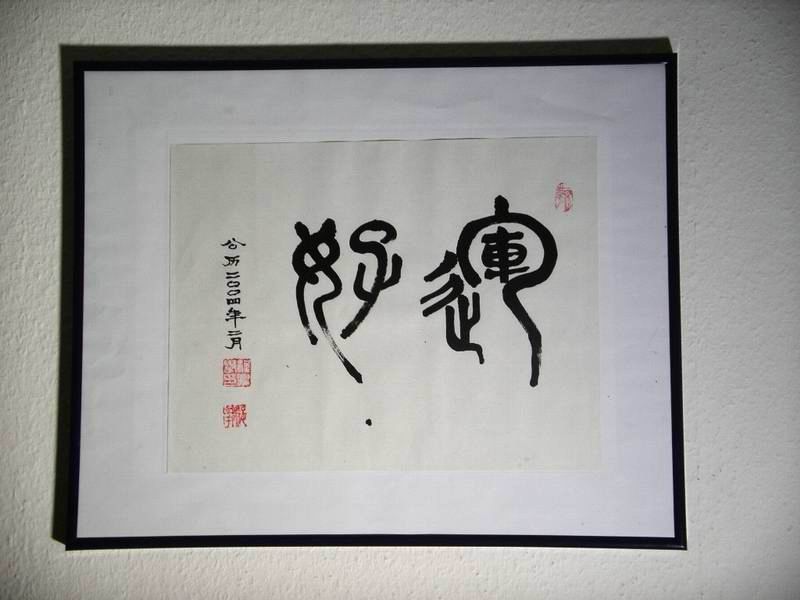 運好
公历二〇〇四年二月